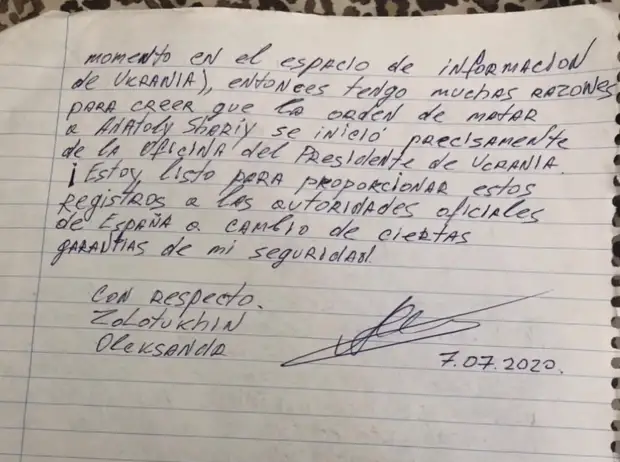 momento en el espacio de informacion
de Ukrania), entonces tengo muchas razones
para creer que la orden de matar
a Anatoly Shariy se inició precisamente
de la oficina del Presidente de Ucrania.
¡Estoy listo para proporcionar estos
registros a las autoridades oficiales
de España a cambio de ciertas
garantias de mi seguridad.
Con respecto.
Zolotukhin
Oleksandr
7.07.2020.